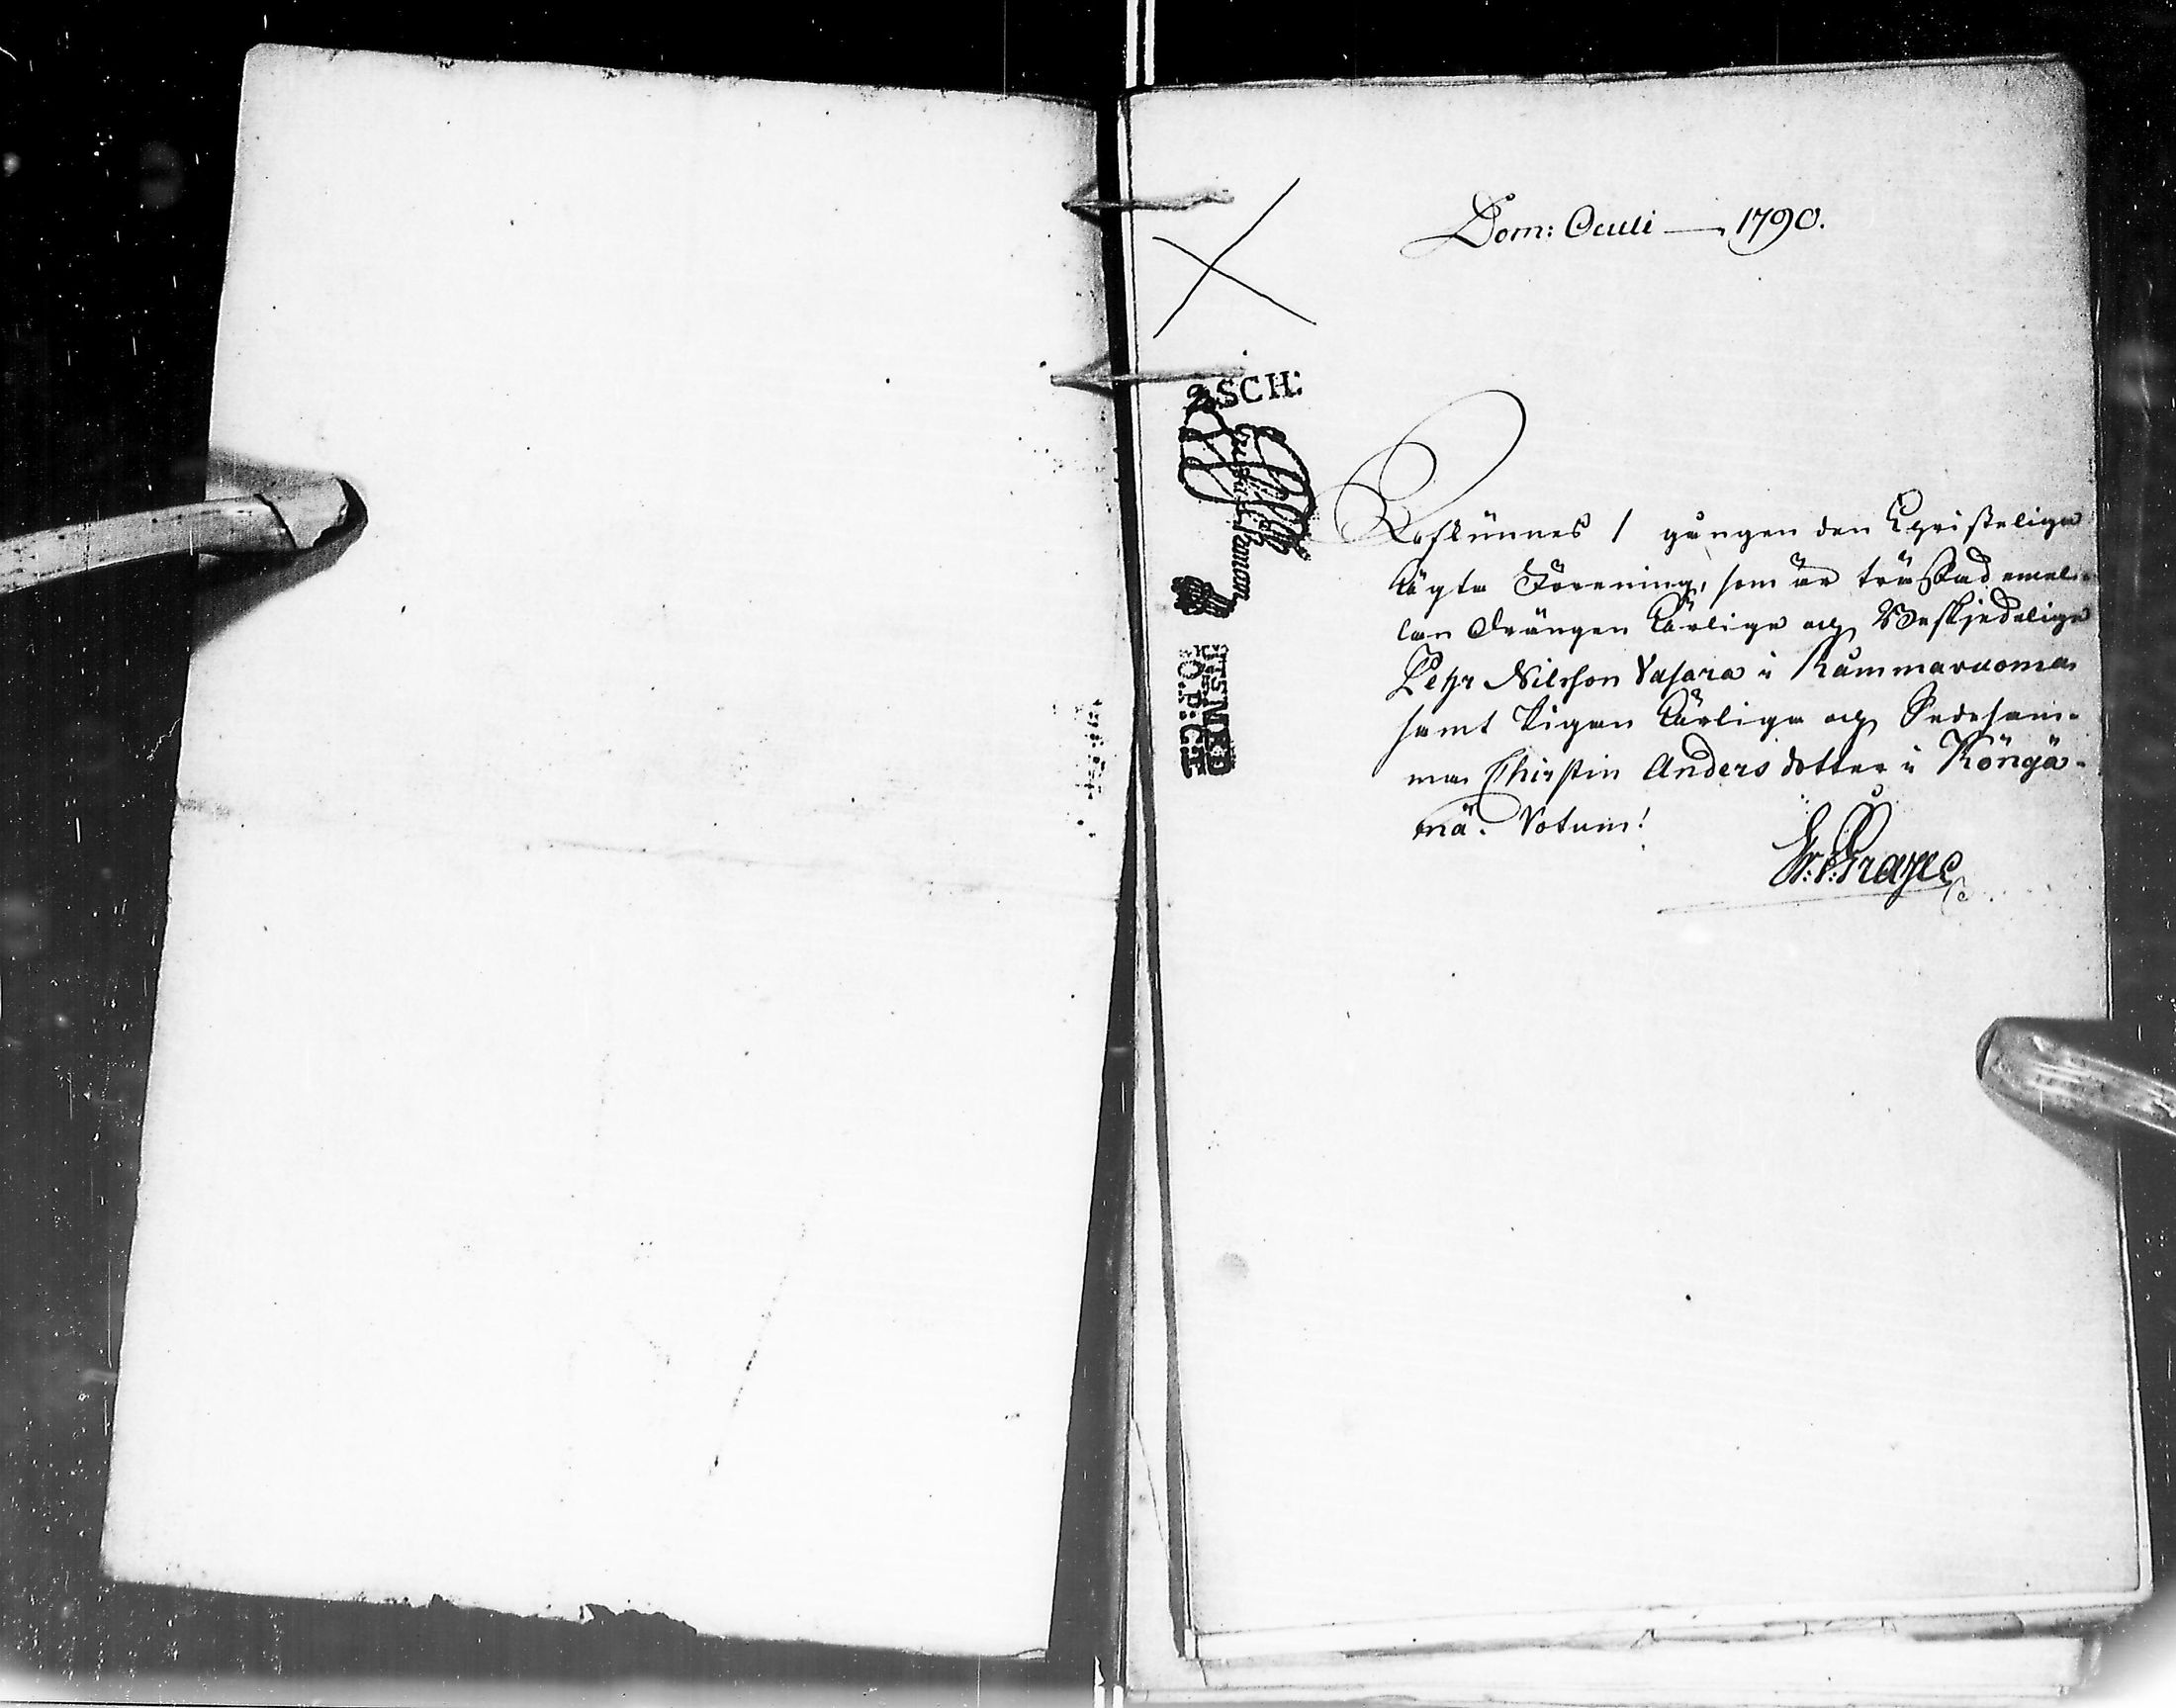 Dom: Oculi — 1790.
2 SCH:
Afkunnes 1 gången den Christeliga
Ägta Förening, som är träffad emel-
lan Drängen Ärlige och Beskjedelige
Pehr Nilsson Vasara i Kåmmavuoma
samt Pigan Ärliga och Sedesam-
ma Chirstin Anders dotter i Köngä-
mä. Votum!